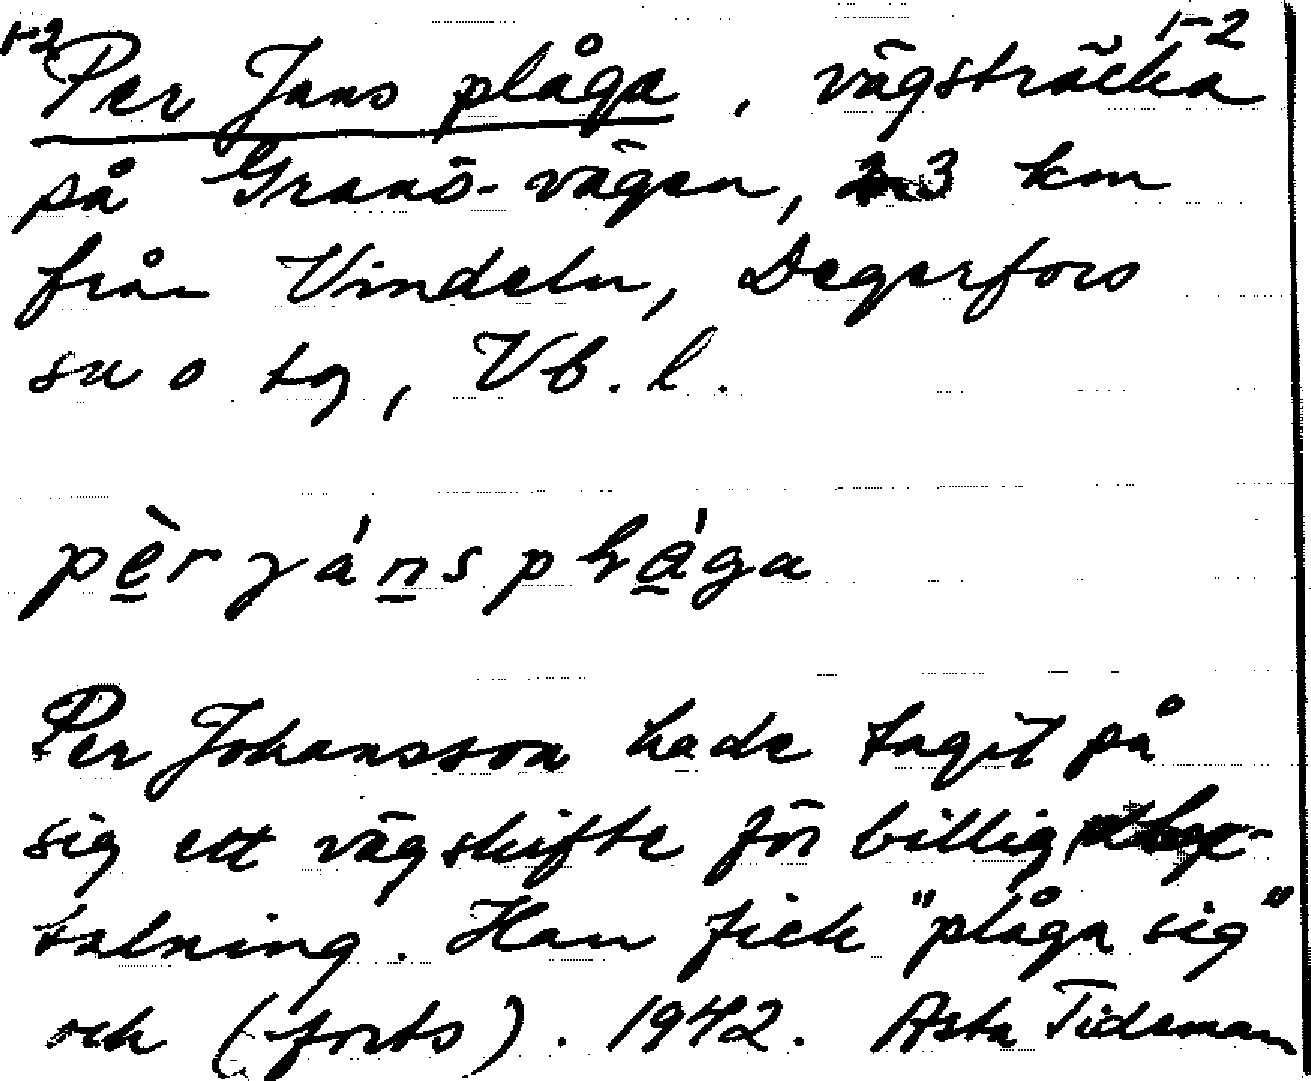 1-2 1-2
Per Jans plåga, vägsträcka
på Granö-vägen, 3 km
från Vindeln, Degerfors
sn o tg, Vb. l.
pèr jáns phlága
Per Johansson hade tagit på
sig ett vägskifte för billig
talning. Han fick "plåga sig"
och (forts). 1942. Asta Tideman